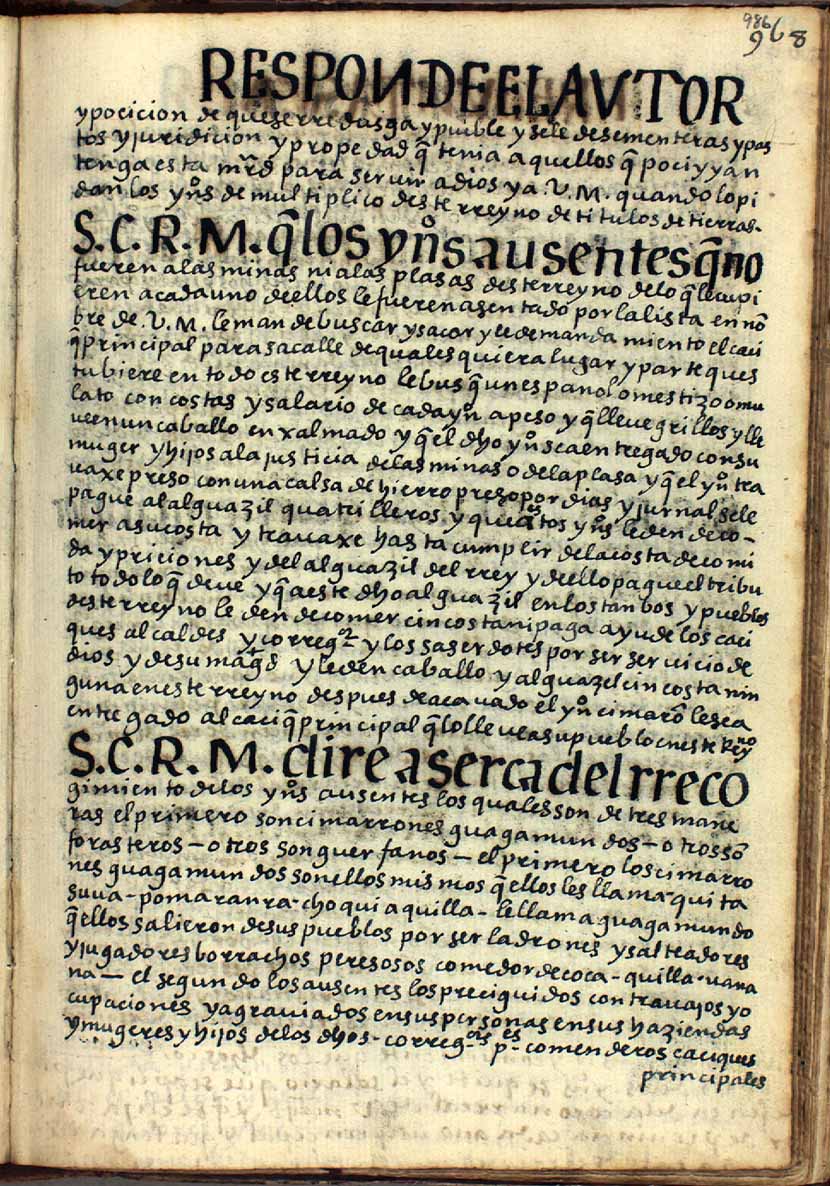 986
968
RESPONDE EL AVTOR
y pocicion de que se rredasga y puible y se le de sementeras y pas
tos y juridicion y propedad q̃ tenia aquellos q̃ pociyyan
tenga esta mrd̃ para servir a dios y a .V.M. quando lo pi
dan los yn̊s de multiplico deste rreyno de titulos de tierras-
S.C.R.M. q̃ los yn̊s ausentes q̃ no
fueren a las minas ni a las plasas deste rreyno de lo q̃ le cupi
eren a cada uno de ellos le fueren asentado por la lista en nõ
bre de .V.M. le mande buscar y sacar y le de mandamiento el caci
q̃ principal para sacalle de quales quiera lugar y parte ques
tubiere en todo este rreyno le bus q̃ un español o mestizo o mu
lato con costas y salario de cada yn̊ a peso y q̃ lleve grillos y lle
ve en un caballo enxalmado y q̃ el dho yn̊ sea entregado con su
muger y hijos a la justicia de las minas o de la plasa y q̃ el yn̊ tra
vaxe preso con una calsa de hierro preso por dias y jornal se le
pague al alguazil quatrilleros y que a estos yn̊s le den de co-
mer a su costa y travaxe hasta cumplir de la costa de comi
da y priciones y del alguazil del rrey y de ello pague el tribu
to todo lo q̃ deve y q̃ a este dho alguazil en los tanbos y pueblos
deste rreyno le den de comer cin costa ni paga ayude los caci
ques alcaldes y correg.or y los saserdotes por ser servicio de
dios y de su mag.d y le den caballo y alguazel cin costa nin
guna en este rreyno despues de acavado el yn̊ cimarõ le sea
entregado al caciq̃ principal q̃ lo lleve a su pueblo en este rreyno
S.C.R.M. dire aserca del rreco
gimiento de los yn̊s ausentes los quales son de tres mane
ras el primero son cimarrones guagamundos - otros sõ
forasteros - otros son guerfanos - el primero los cimarro
nes guagamundos son ellos mismos q̃ ellos les llama - quita
suua - poma ranra - choqui aquilla - le llama guagamundo
q̃ ellos salieron de sus pueblos por ser ladrones y salteadores
y jugadores borrachos peresosos comedor de coca - quilla - uana
na - el segundo los ausentes los preciguidos con travajos y o
cupaciones y agraviados en sus personas en sus haziendas
y mugeres y hijos de los dhos - correg.ores p.es - comenderos caciques
principales